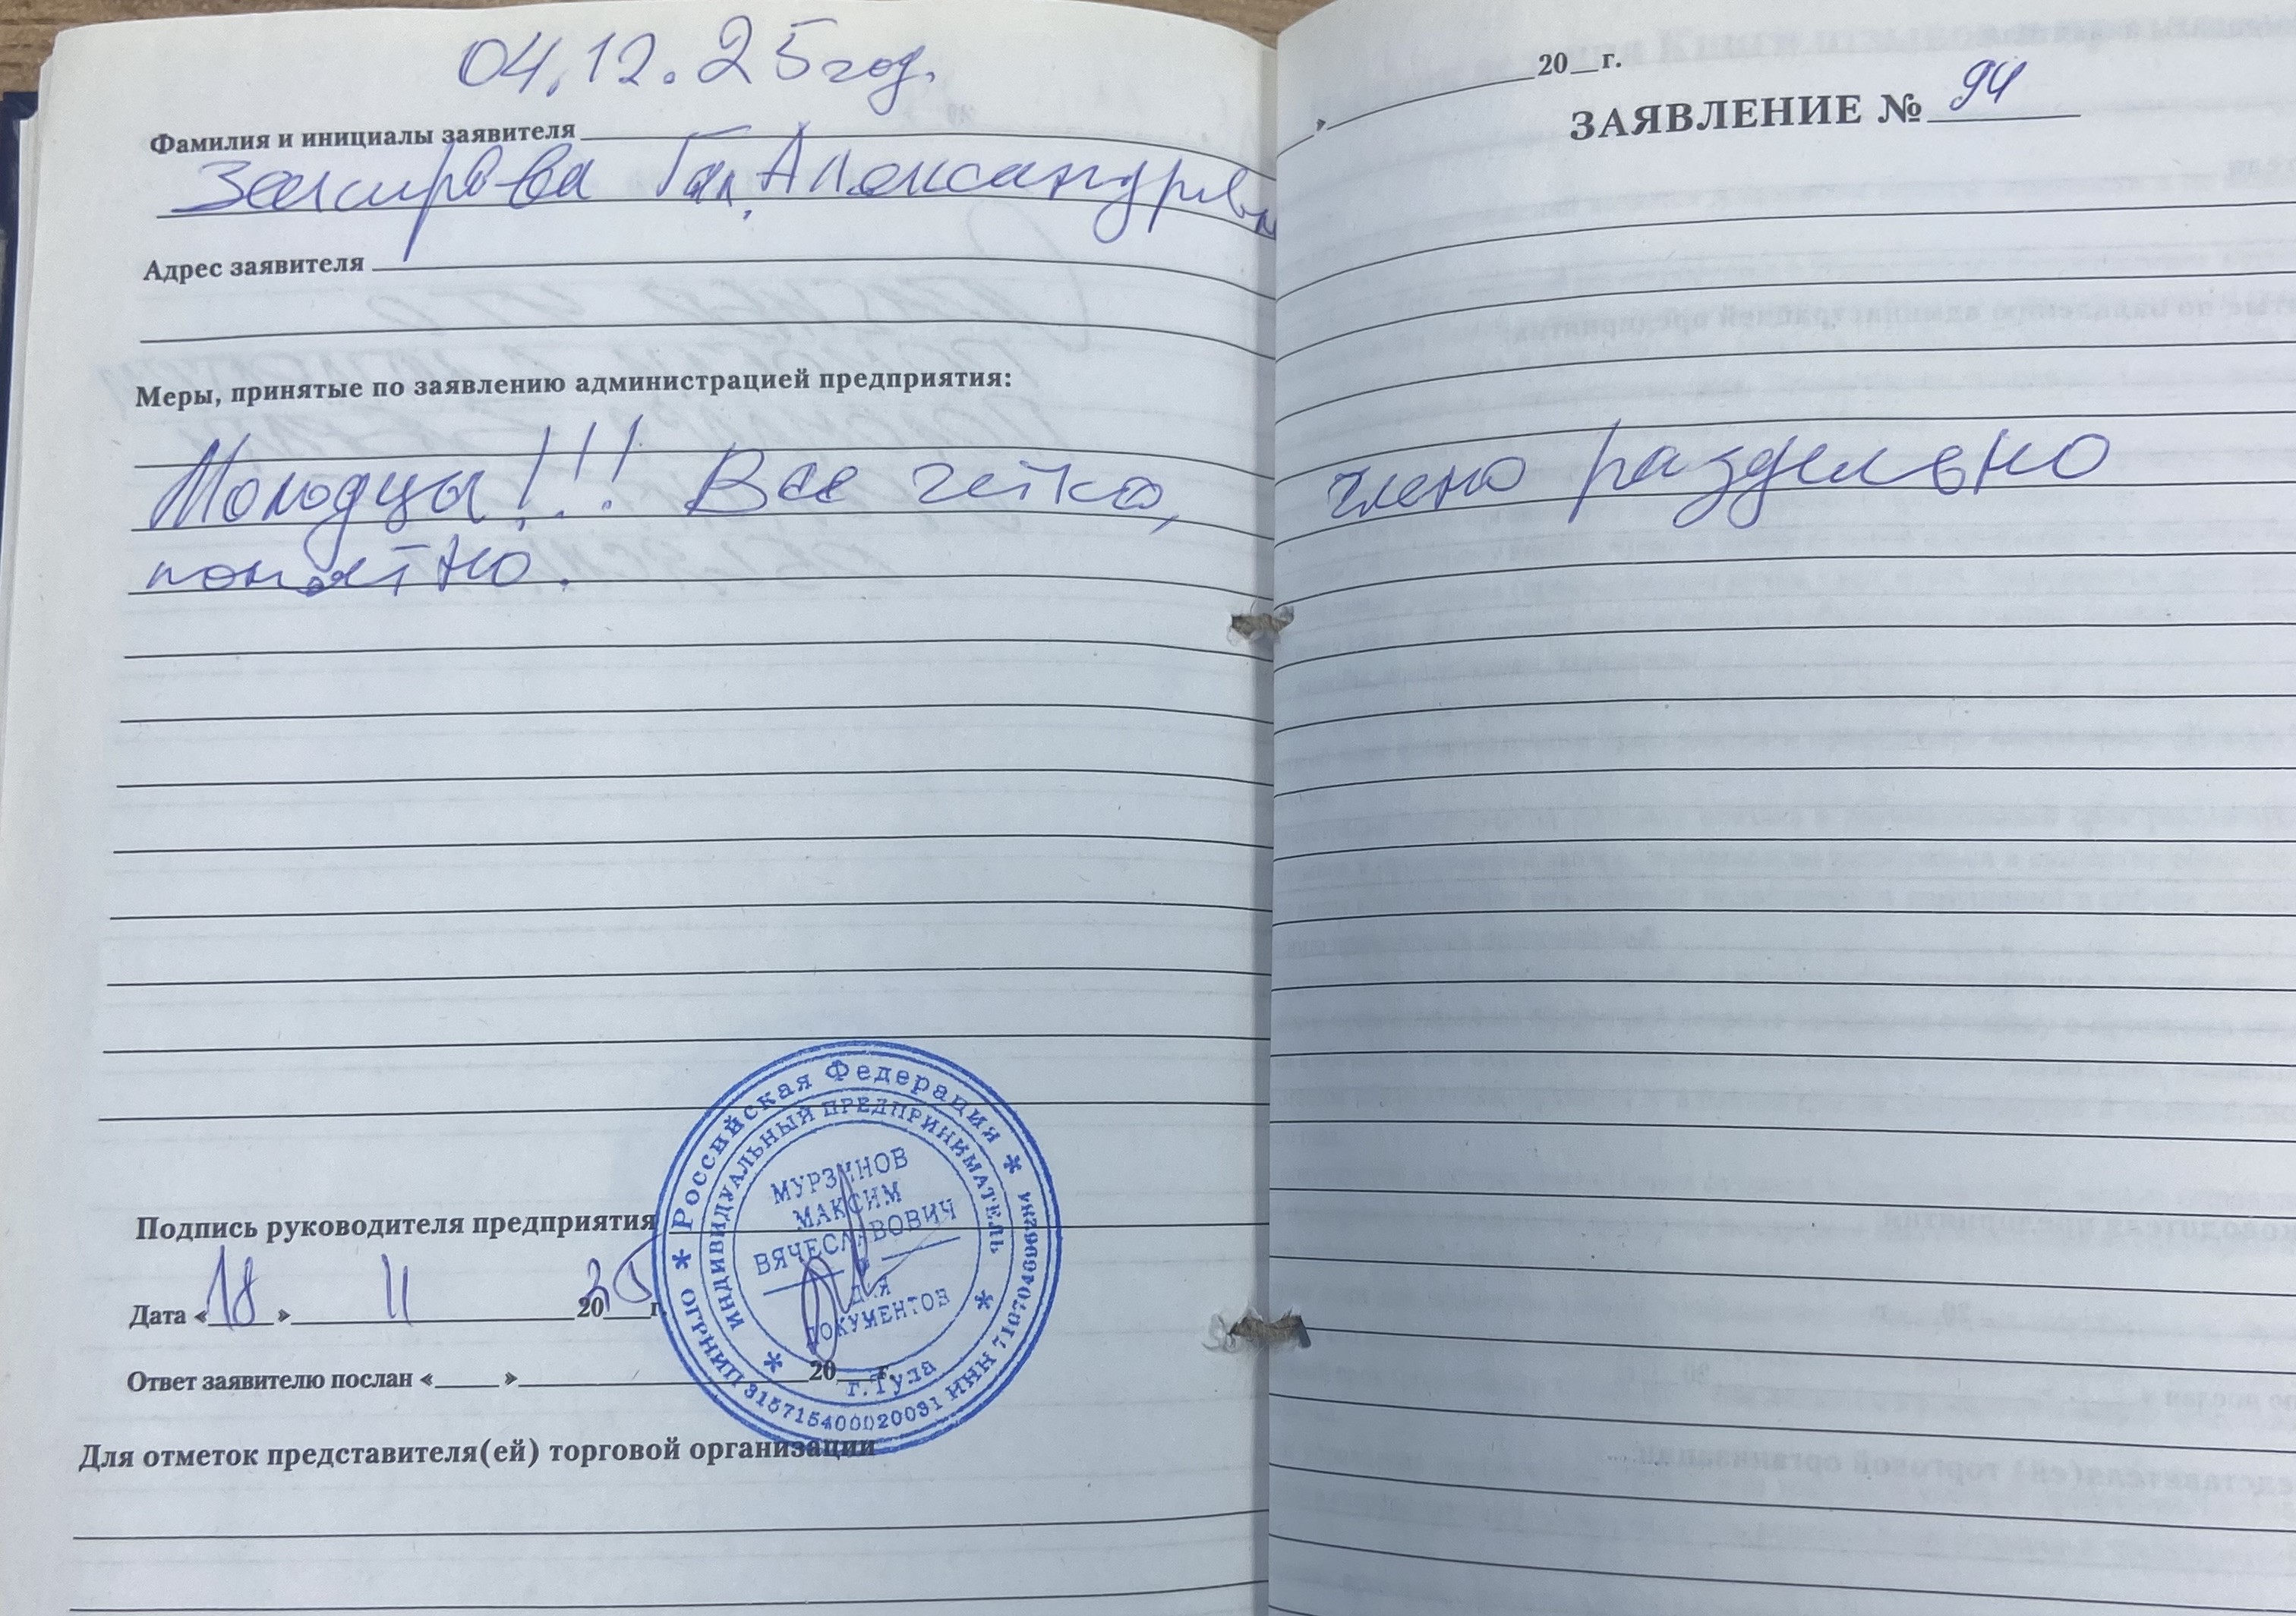 04.12.25 год.
Фамилия и инициалы заявителя
Закирова Гал. Александровн
Адрес заявителя
Меры, принятые по заявлению администрацией предприятия:
Молодцы!!! Все четко,
понятно.
Подпись руководителя предприятия
Дата «18» 11 2025 г.
Ответ заявителю послан « » 20 г.
Для отметок представителя(ей) торговой организации
* Российская Федерация *
ИНДИВИДУАЛЬНЫЙ ПРЕДПРИНИМАТЕЛЬ
МУРЗИНОВ
МАКСИМ
ВЯЧЕСЛАВОВИЧ
ДЛЯ
ДОКУМЕНТОВ
* г. Тула *
ОГРНИП 315715400020031 ИНН
» 20 г.
ЗАЯВЛЕНИЕ № 94
члено раздельно